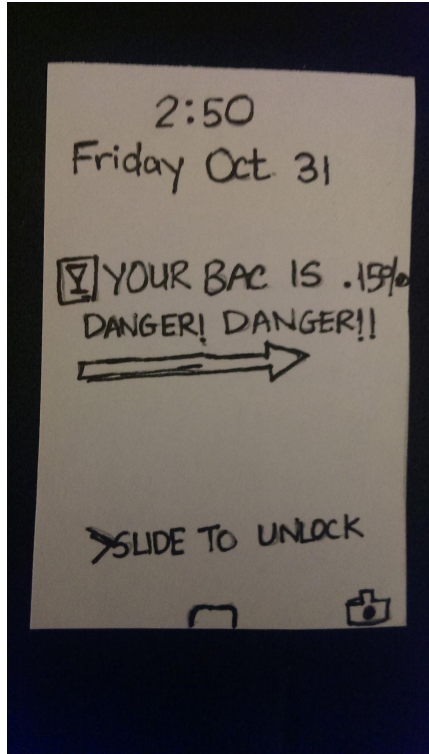 2:50
Friday Oct 31
YOUR BAC IS .15%
DANGER! DANGER!!
>SLIDE TO UNLOCK